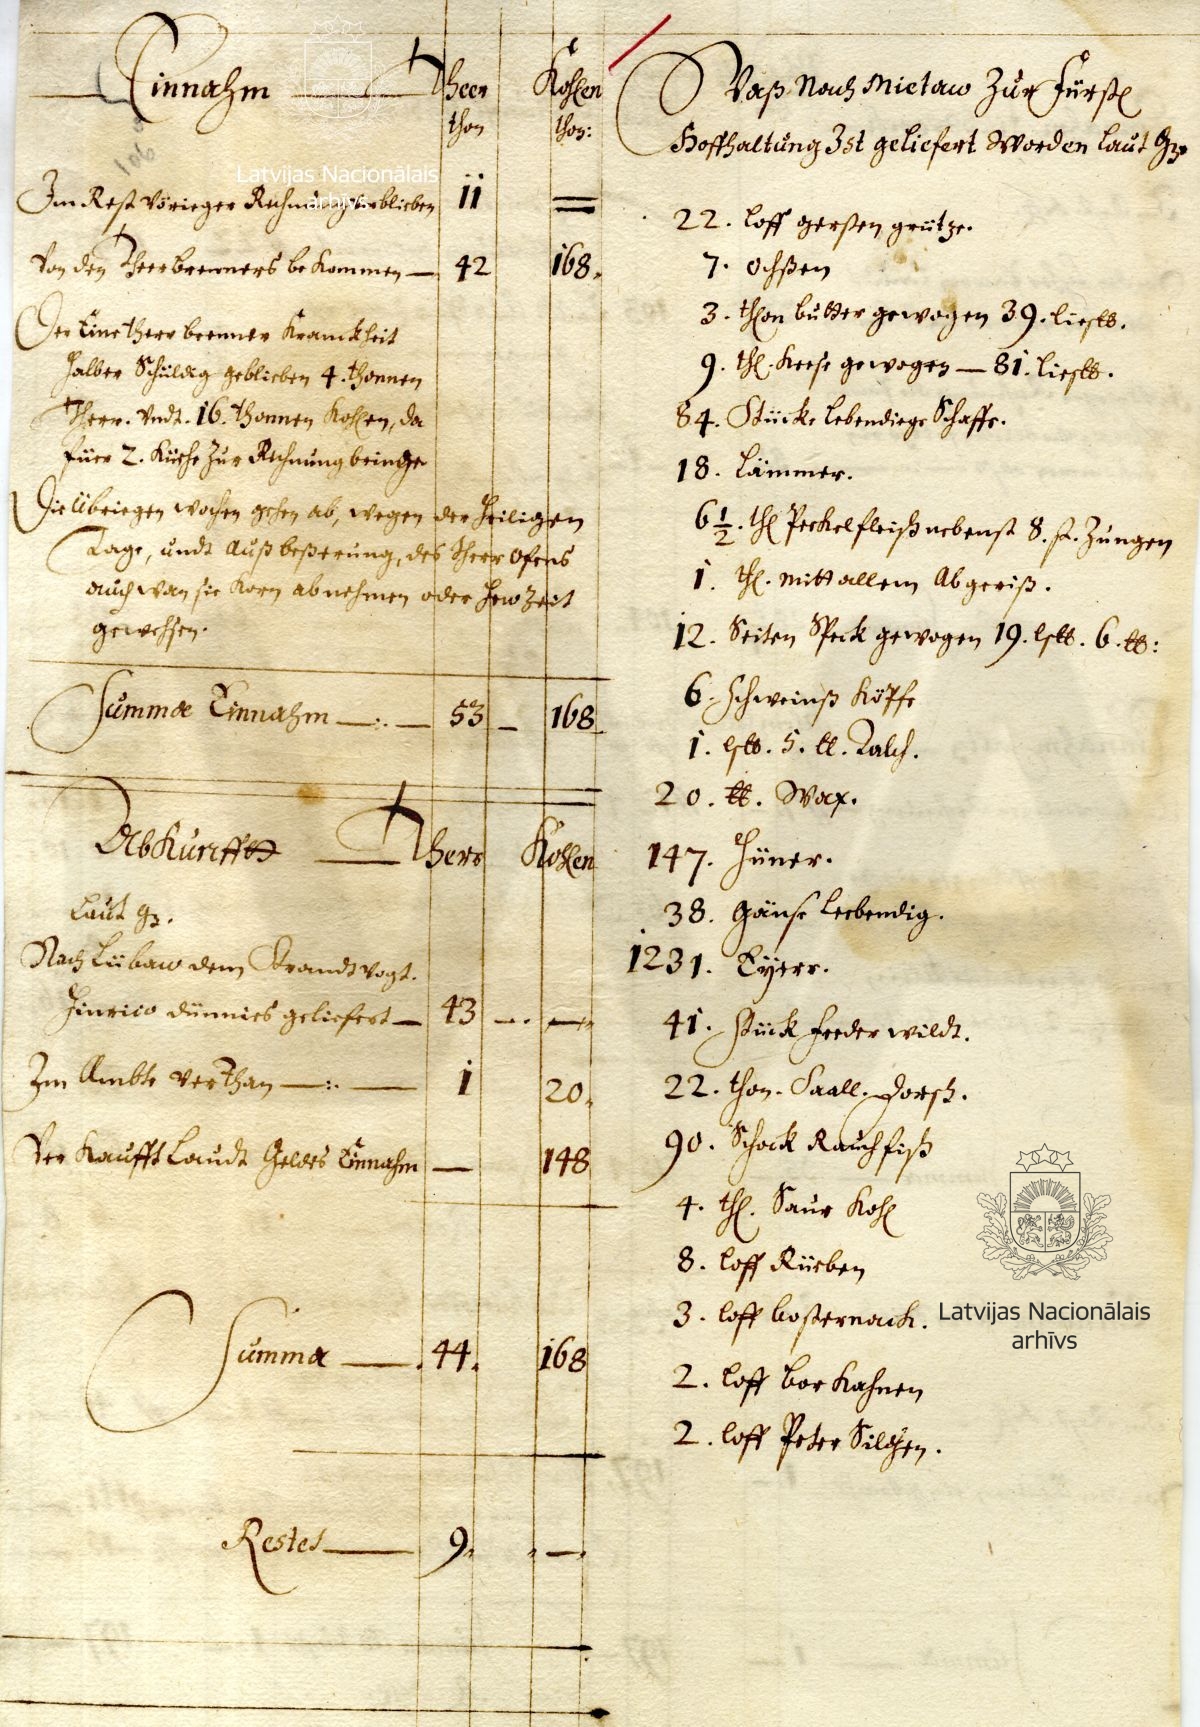 Einnahm Theer Kohlen
thon thon:
Im Rest Vorieger Rechnung verblieben 11 =
Von den Theerbrenners bekommen — 42 168.
Der Eine Theerbrenner Kranckheit
halber Schüldig geblieben 4. thonnen
Theer. Vndt. 16. thonnen Kohlen, da
füer 2. Kühe Zur Rechnung bringe
Die übriegen wochen gehen ab, wegen der heiligen
Tage, undt Außbeßerung, des Theer ofens
auch wan sie Korn abnehmen oder hew Zeit
gewehsen.
Summa Einnahm —:— 53 — 168
Abkunfft — Theer Kohlen
Laut
Nach Liibaw dem Strandtvogt.
Hinrico dünnies geliefert — 43 —. —
Im Ambte verthan —:— 1 20.
Verkaufft Laudt Geldes Einnahm — 148
Summa — . 44. 168
Restes — 9. —
Waß Nach Mietaw Zur Fürstl
Hoffhaltung Ist geliefert Worden laut
22. loff gersten grütze.
7. ochßen
3. thon butter gewogen 39. liestt.
9. th. Keese gewogen — 81. liestt.
84. Stücke lebendiege Schaffe.
18. Lämmer.
6 1/2. th Peckelfleiß nebenst 8. st. Zungen
1. th. mitt allem Abgeriß.
12. Seiten Speck gewogen 19. lstt. 6. tt:
6. schweinß Köpfe
1. lstt. 5. tt. Talch.
20. tt. Wax.
147. Hüner.
38. gänse leebendig.
1231. Eyerr.
41. stück feeder wildt.
22. thon. Saall. dorsch.
90. Schock Rauchfiß
4. th. Saur Kohl
8. loff Rüeben
3. loff bosternack.
2. loff borkahnen
2. loff Petersilgen.
Latvijas Nacionālais
arhīvs
Latvijas Nacionālais
arhīvs